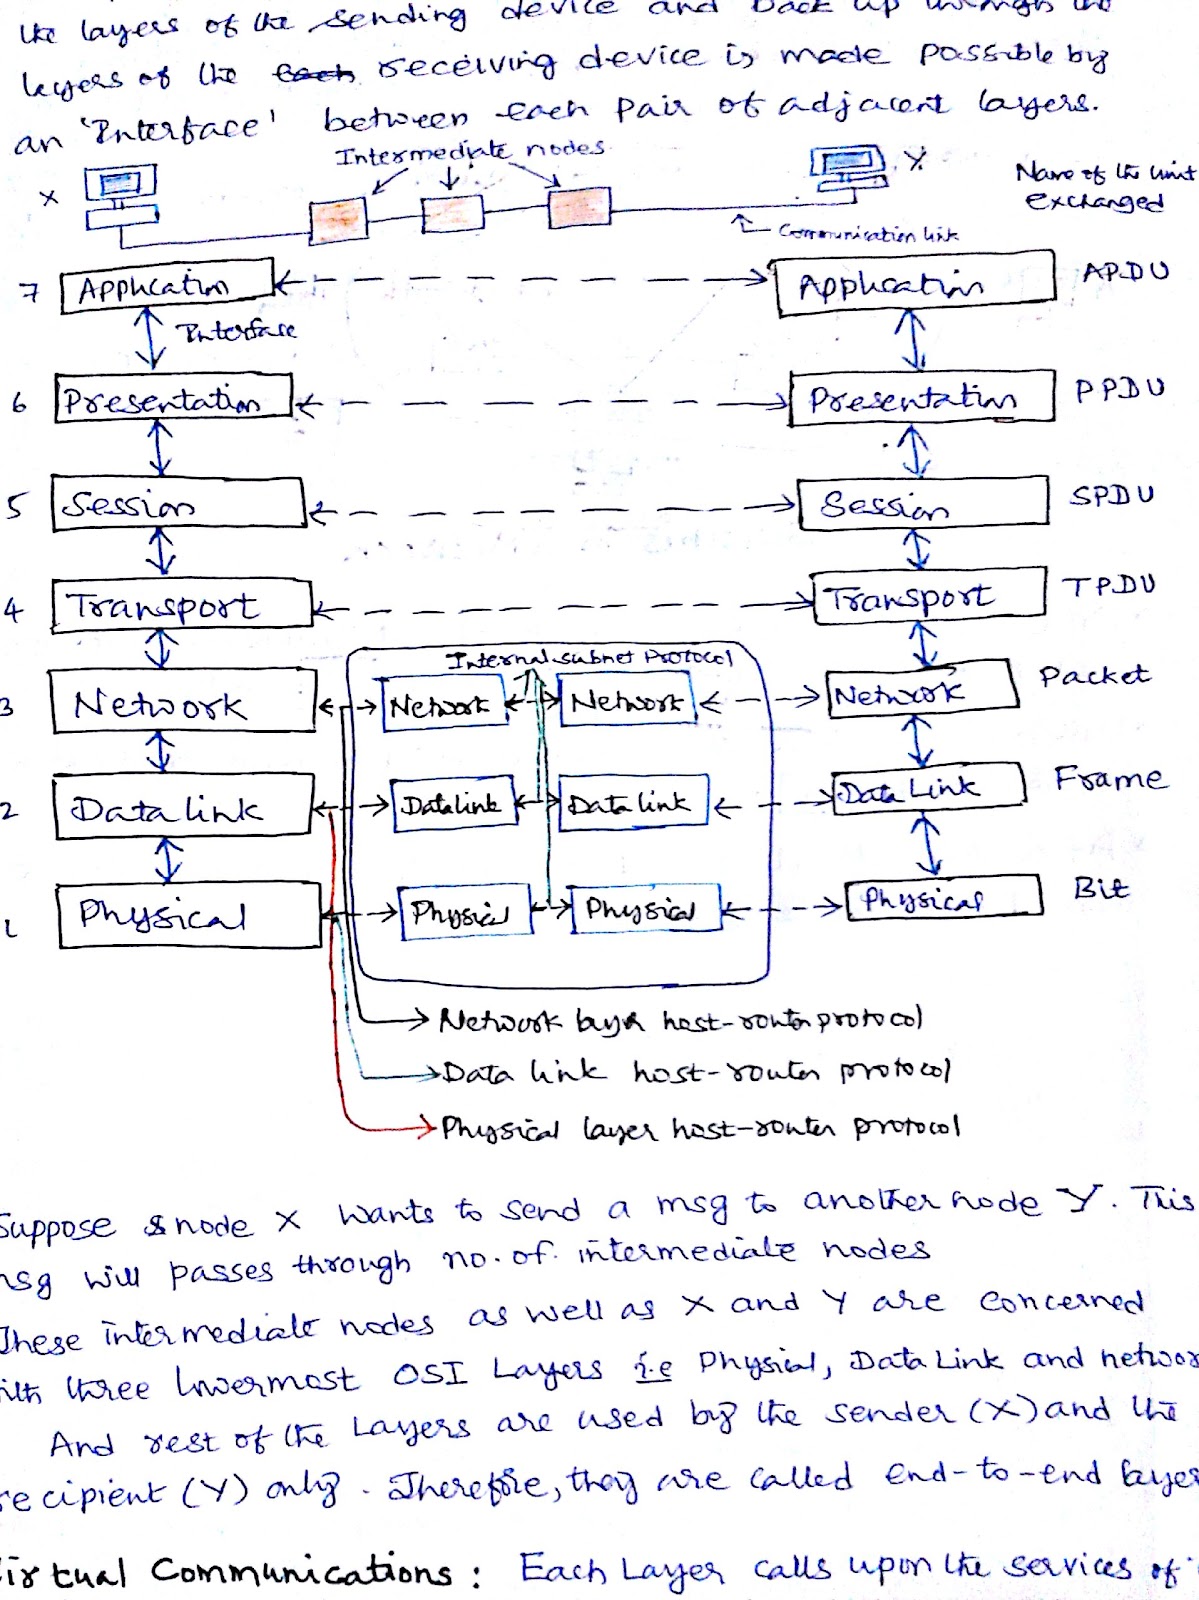 the layers of the sending device and back up through the
layers of the receiving device is made possible by
an 'Interface' between each pair of adjacent layers.
Intermediate nodes
X
Y
Name of the unit
exchanged
Communication link
7 Application Application APDU
Interface
6 Presentation Presentation PPDU
5 Session Session SPDU
4 Transport Transport TPDU
Internal subnet Protocol
3 Network Network Network Network Packet
2 Data link Datalink Data link Data Link Frame
1 Physical Physical Physical Physical Bit
Network layer host-router protocol
Data link host-router protocol
Physical layer host-router protocol
Suppose node X wants to send a msg to another node Y. This
msg will passes through no. of intermediate nodes
These intermediate nodes as well as X and Y are concerned
with three lowermost OSI Layers i.e Physial, Data Link and networ
And rest of the Layers are used by the sender (X) and the
recipient (Y) only. Therefore, they are called end-to-end layer
Virtual Communications : Each Layer calls upon the services of